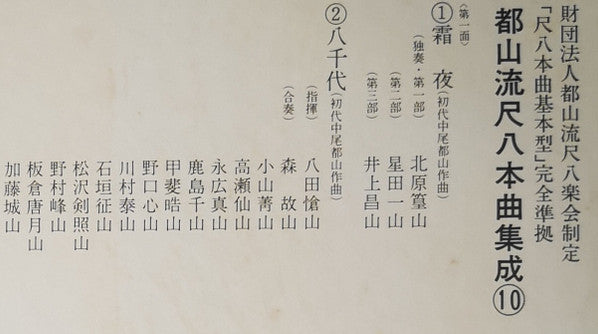 財団法人都山流尺八楽会制定
「尺八本曲基本型」完全準拠
都山流尺八本曲集成⑩
〈第一面〉
①霜 夜(初代中尾都山作曲)
(独奏・第一部) 北原篁山
(第二部) 星田一山
(第三部) 井上昌山
②八千代(初代中尾都山作曲)
(指揮) 八田愴山
(合奏) 森 故山
小山菁山
高瀬仙山
永広真山
鹿島千山
甲斐晧山
野口心山
川村泰山
石垣征山
松沢剣照山
野村峰山
板倉唐月山
加藤城山